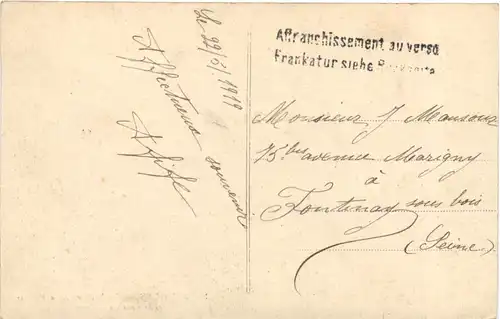 Le 22/6/1919
Affectueux souvenir
Affranchissement au verso
Frankatur siehe Rückseite
Monsieur J Mansour
75 bis avenue Marigny
à
Fontenay sous bois
(Seine)